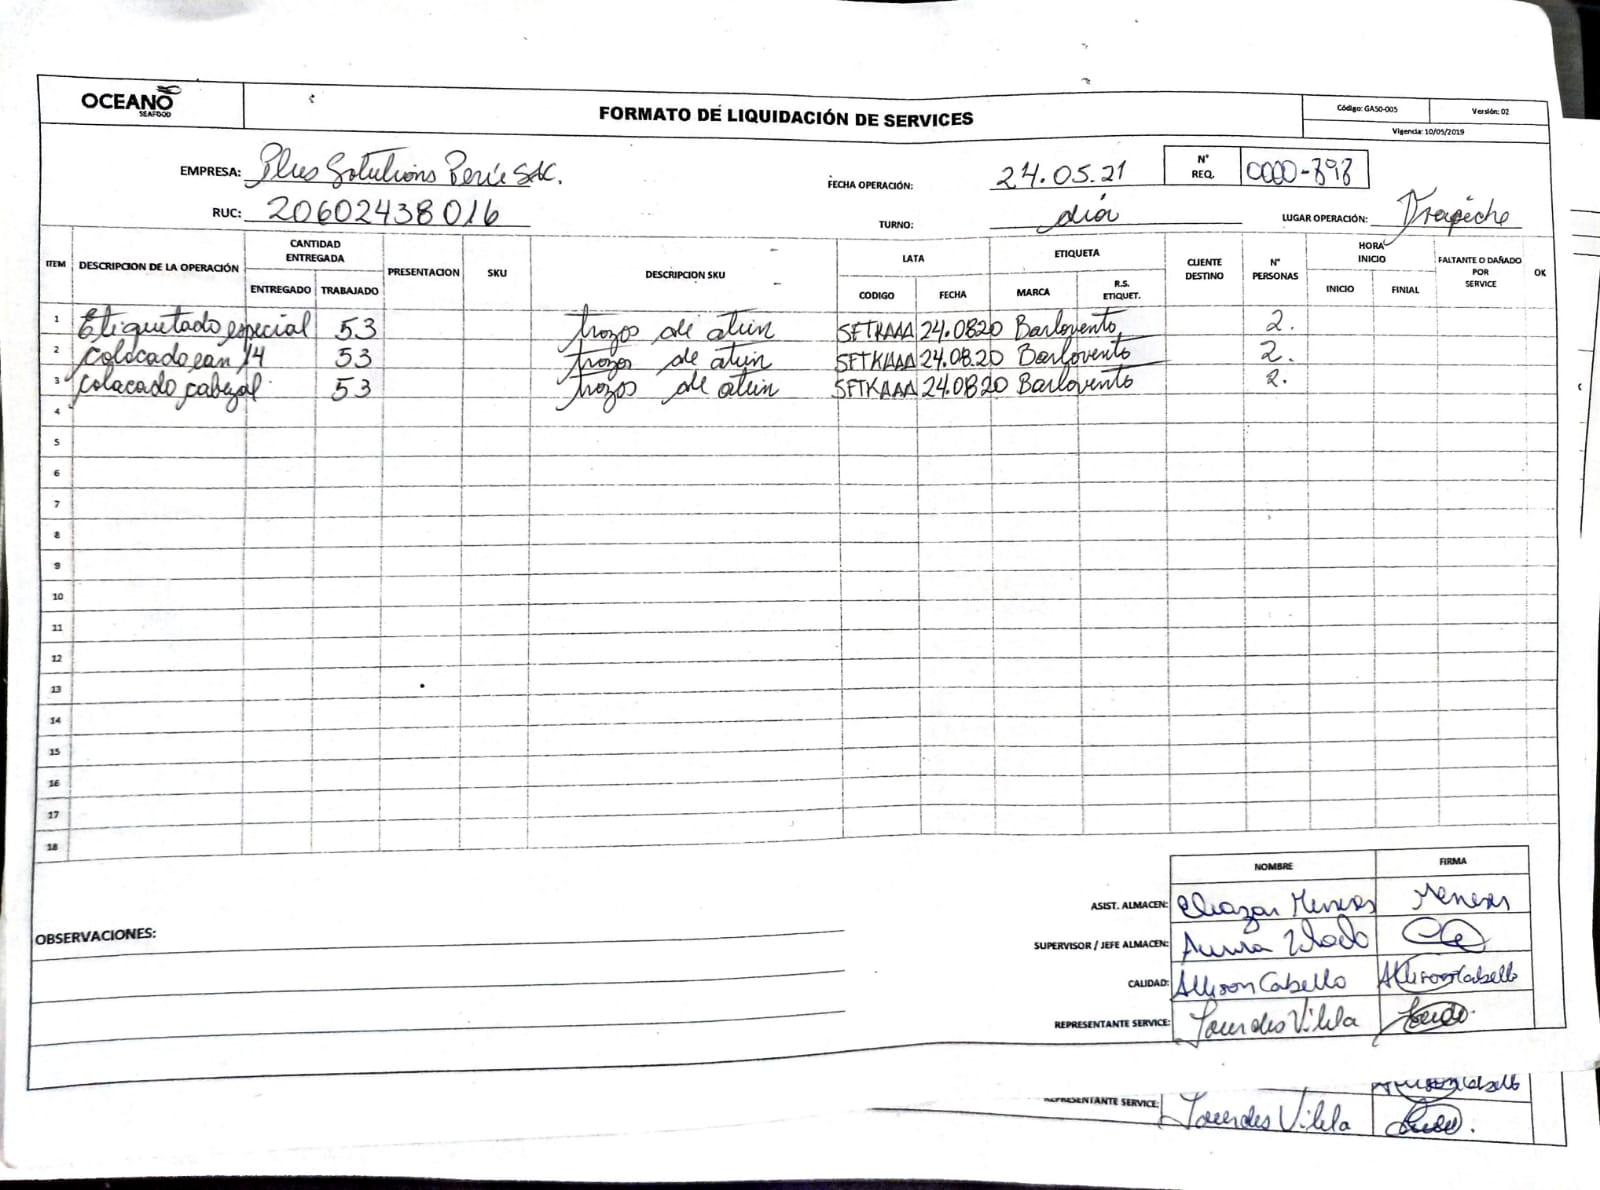 OCEANO
SEAFOOD
FORMATO DE LIQUIDACIÓN DE SERVICES
Código: GA50-005
Versión: 02
Vigencia: 10/05/2019
EMPRESA: Plus Solutions Perú SAC.
FECHA OPERACIÓN: 24.05.21
N° REQ. 0000-898
RUC: 20602438016
TURNO: día
LUGAR OPERACIÓN: Trapiche
ITEM DESCRIPCION DE LA OPERACIÓN CANTIDAD ENTREGADA PRESENTACION SKU DESCRIPCION SKU LATA ETIQUETA CLIENTE DESTINO N° PERSONAS HORA INICIO FALTANTE O DAÑADO POR SERVICE OK
ENTREGADO TRABAJADO CODIGO FECHA MARCA R.S. ETIQUET. INICIO FINIAL
1 Etiquetado especial 53 trozos de atún SFTKAAA 24.0820 Barlovento 2.
2 Colocado ean 14 53 trozos de atún SFTKAAA 24.08.20 Barlovento 2.
3 Colocado cabezal 53 trozos de atún SFTKAAA 24.0820 Barlovento 2.
4
5
6
7
8
9
10
11
12
13
14
15
16
17
18
NOMBRE FIRMA
ASIST. ALMACEN: Eleazar Meneses Meneses
SUPERVISOR / JEFE ALMACEN:
CALIDAD: Allison Cabello Allison Cabello
REPRESENTANTE SERVICE: Lourdes Vilela
OBSERVACIONES:
Cabello
REPRESENTANTE SERVICE: Lourdes Vilela